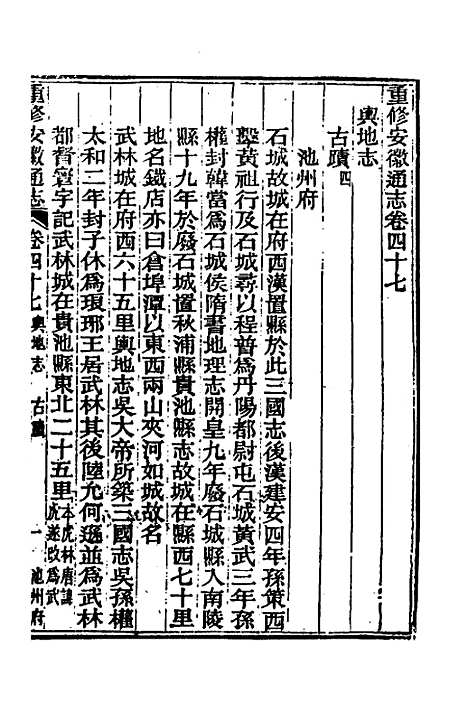 重修安徽通志卷四十七
輿地志
古蹟四
池州府
石城故城在府西漢置縣於此三國志後漢建安四年孫策西
擊黃祖行及石城尋以程普爲丹陽都尉屯石城黃武三年孫
權封韓當爲石城侯隋書地理志開皇九年廢石城縣入南陵
縣十九年於廢石城置秋浦縣貴池縣志故城在縣西七十里
地名鐵店亦曰倉埠潭以東西兩山夾河如城故名
武林城在府西六十五里輿地志吳大帝所築三國志吳孫權
太和二年封子休爲琅琊王居武林其後陸允何遜並爲武林
都督寰宇記武林城在貴池縣東北二十五里本虎林唐諱虎遂改爲武
重修安徽通志 卷四十七 輿地志 古蹟 一 池州府